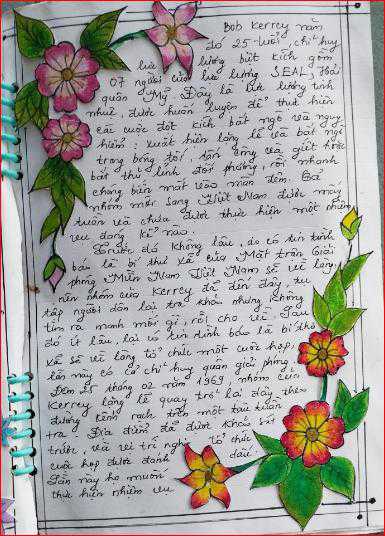 Bob Kerrey năm
đó 25 tuổi, chỉ huy
lực lượng biệt kích gồm
07 người của lực lượng SEAL, Hải
quân Mỹ. Đây là lực lượng tinh
nhuệ, được huấn luyện để thực hiện
các cuộc đột kích bất ngờ và nguy
hiểm: xuất hiện lặng lẽ và bất ngờ
trong bóng tối, tấn công và giết hoặc
bắt thủ lĩnh đối phương, rồi nhanh
chóng biến mất vào màn đêm. Cả
nhóm mới sang Việt Nam được mấy
tuần và chưa được thực hiện một nhiệm
vụ đáng kể nào.
Trước đó không lâu, do có tin tình
báo là bí thư xã của Mặt trận Giải
phóng Miền Nam Việt Nam sẽ về làng,
nên nhóm của Kerrey đã đến đây, tụ
tập người dân lại tra khảo nhưng không
tìm ra manh mối gì, rồi cho về. Sau
đó ít lâu, lại có tin tình báo là bí thư
xã sẽ về làng tổ chức một cuộc họp,
lần này có cả chỉ huy quân giải phóng.
Đêm 25 tháng 02 năm 1969, nhóm của
Kerrey lặng lẽ quay trở lại đây theo
đường kênh rạch trên một tàu tuần
tra. Địa điểm đã được khảo sát
trước, và vị trí nghi tổ chức
cuộc họp được đánh dấu.
Lần này họ muốn
thực hiện nhiệm vụ